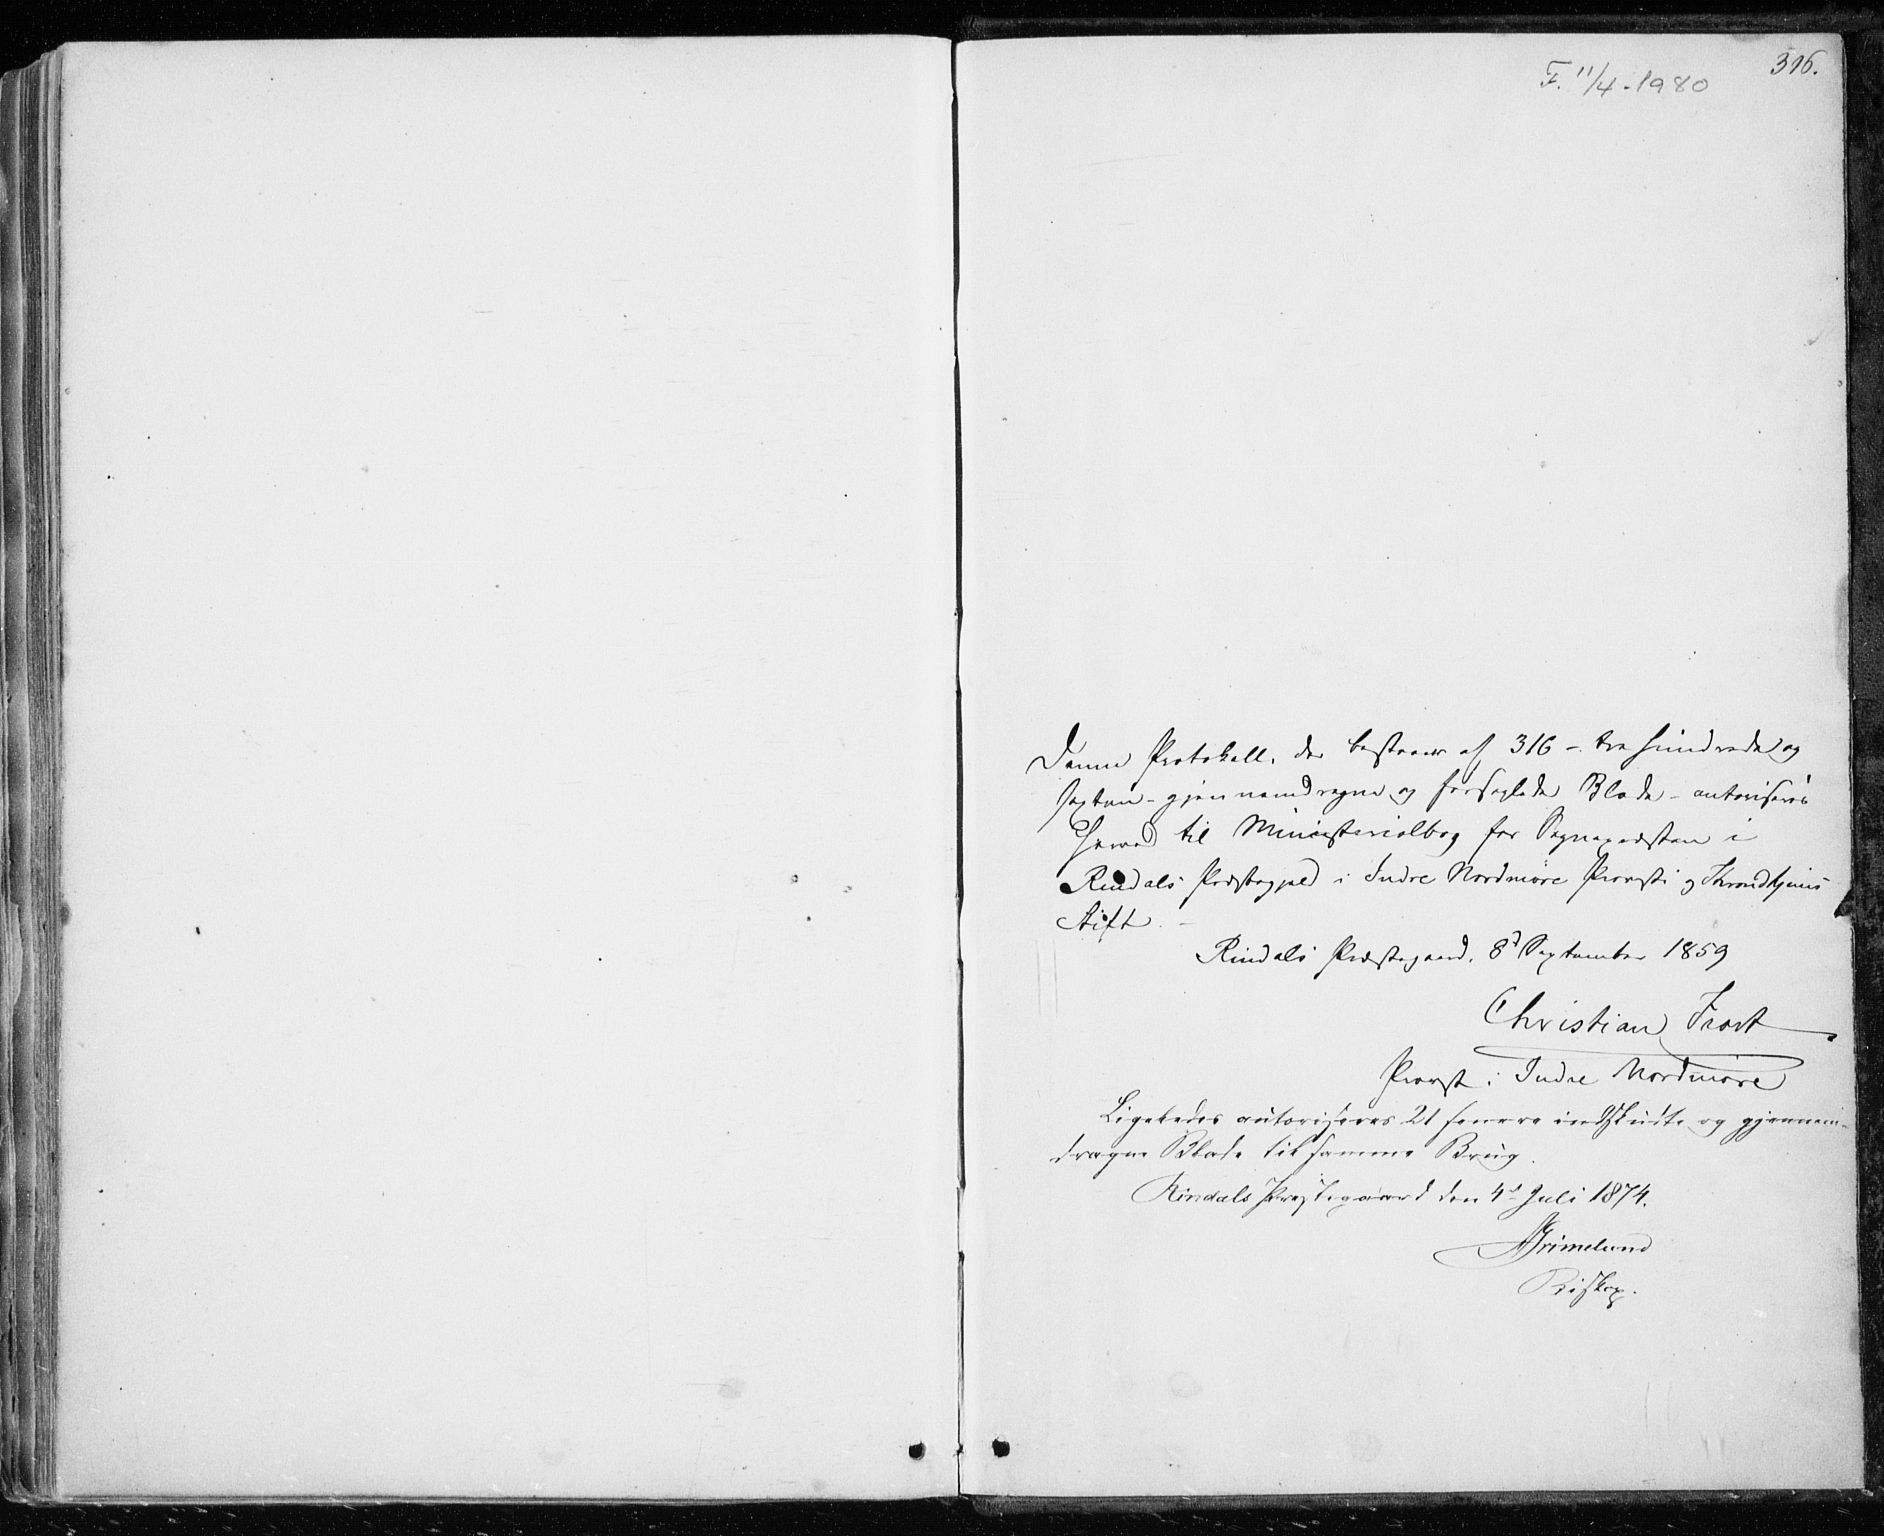 316.
F. 11/4-1980
Denne Protokoll, der bestaaer af 316 - tre hundrede og
sexten - gjennemdragne og forseglede Blade - autoriseres
herved til Ministerialbog for Sognepræsten i
Rindals Præstegjeld i Indre Nordmøre Provsti og Throndhjems
Stift. -
Rindals Præstegaard, 8d September 1859
Christian Frost
Provst i Indre Nordmøre
Ligeledes autoriseres 21 senere indskudte og gjennem-
dragne Blade til samme Brug.
Rindals Præstegaard den 4d Juli 1874.
AGrimelund
Biskop.